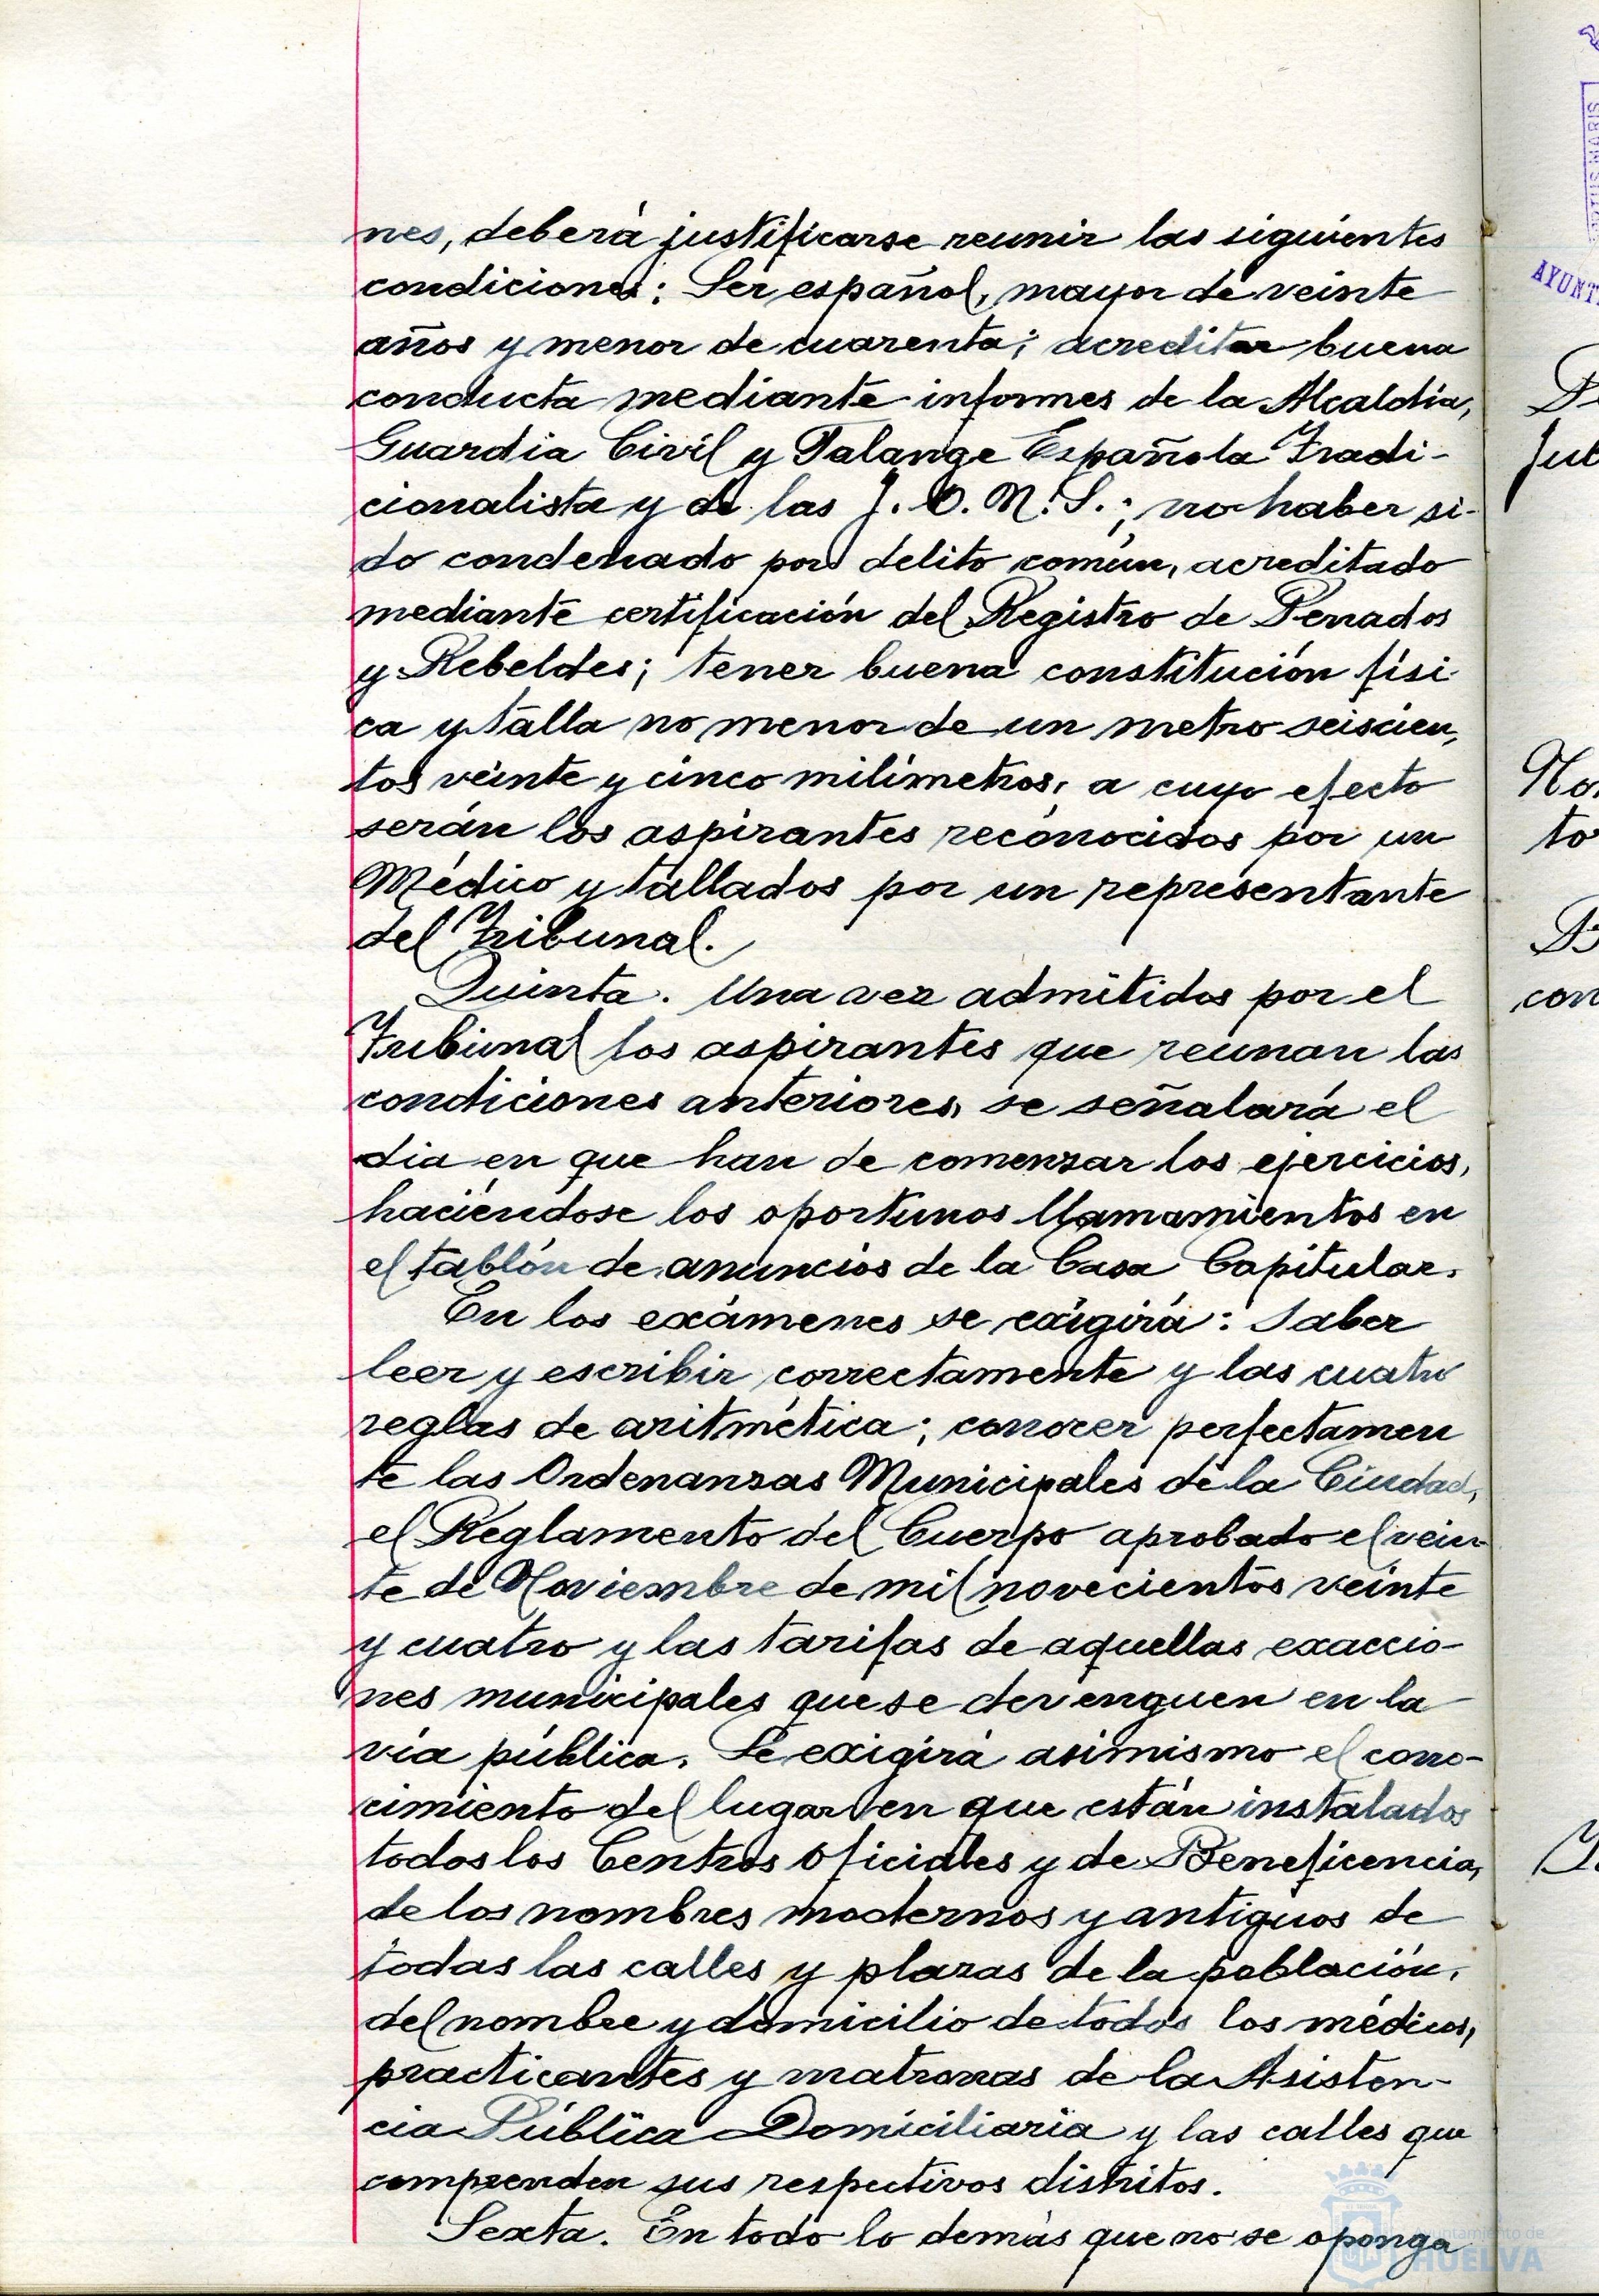 nes, deberá justificarse reunir las siguientes
condiciones: Ser español, mayor de veinte
años y menor de cuarenta; acreditar buena
conducta mediante informes de la Alcaldía,
Guardia Civil y Falange Española Tradi-
cionalista y de las J. O. N. S.; no haber si-
do condenado por delito común, acreditado
mediante certificación del Registro de Penados
y Rebeldes; tener buena constitución físi-
ca y talla no menor de un metro seiscien-
tos veinte y cinco milímetros, a cuyo efecto
serán los aspirantes reconocidos por un
Médico y tallados por un representante
del Tribunal.
Quinta. Una vez admitidos por el
Tribunal los aspirantes que reunan las
condiciones anteriores, se señalará el
día en que han de comenzar los ejercicios,
haciéndose los oportunos llamamientos en
el tablón de anuncios de la Casa Capitular.
En los exámenes se exigirá: Saber
leer y escribir correctamente y las cuatro
reglas de aritmética; conocer perfectamen
te las Ordenanzas Municipales de la Ciudad,
el Reglamento del Cuerpo aprobado el vein-
te de Noviembre de mil novecientos veinte
y cuatro y las tarifas de aquellas exaccio-
nes municipales que se devenguen en la
vía pública. Se exigirá asimismo el cono-
cimiento del lugar en que están instalados
todos los Centros Oficiales y de Beneficencia,
de los nombres modernos y antiguos de
todas las calles y plazas de la población,
del nombre y domicilio de todos los médicos,
practicantes y matronas de la Asisten-
cia Pública Domiciliaria y las calles que
comprenden sus respectivos distritos.
Sexta. En todo lo demás que no se oponga
Ayuntamiento de
HUELVA
AYUNT
No
to
con